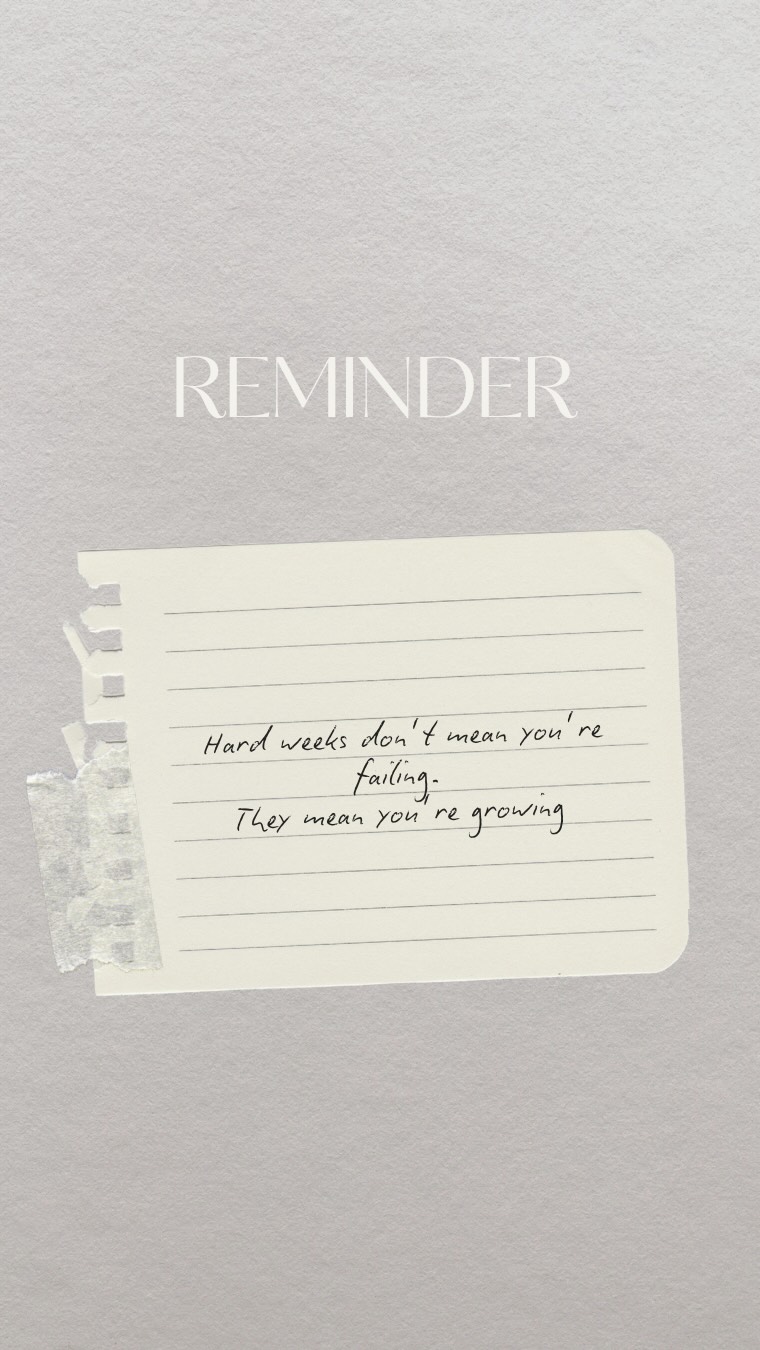 REMINDER
Hard weeks don't mean you're
failing.
They mean you're growing